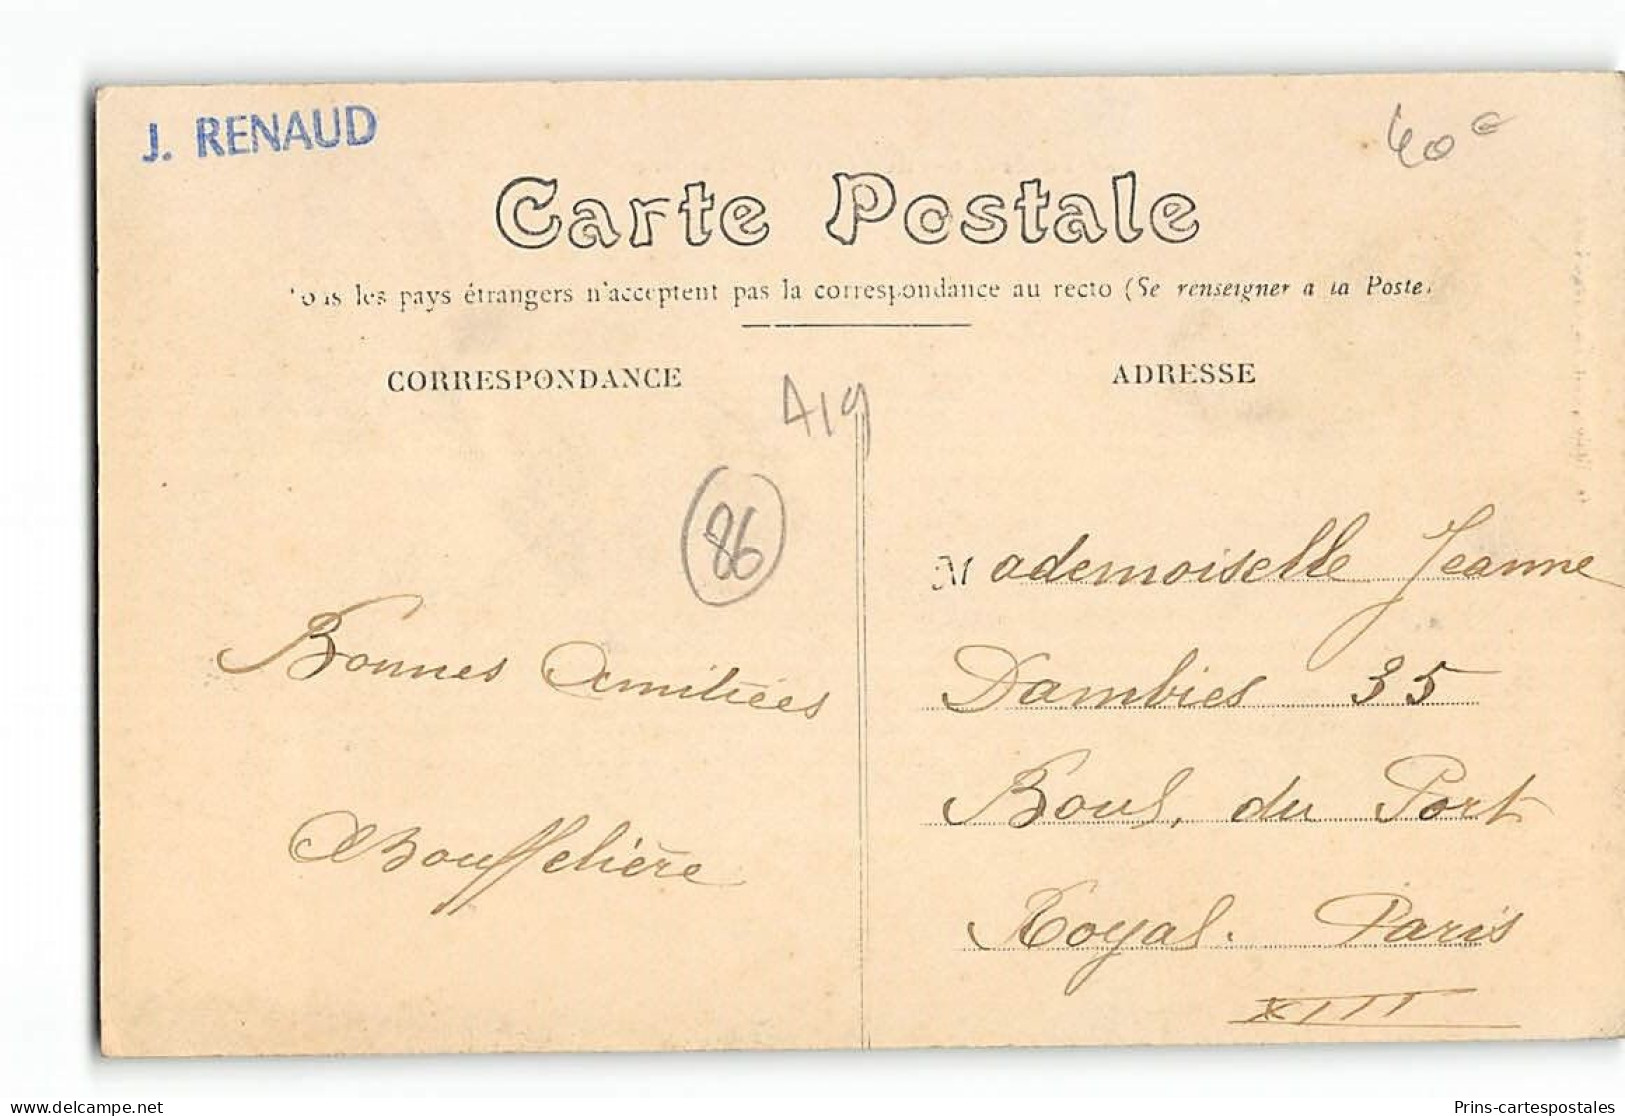 J. RENAUD
40 €
Carte Postale
Tous les pays étrangers n'acceptent pas la correspondance au recto (Se renseigner a la Poste)
CORRESPONDANCE
ADRESSE
A19
86
Bonnes Amitiées
Bouffelière
Mademoiselle Jeanne
Dambies 35
Boul. du Port
Royal. Paris
XIII
delcampe.net
Prins-cartespostales